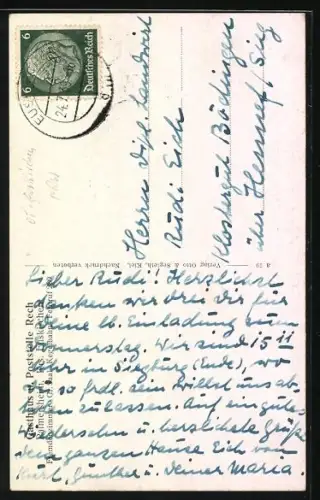 6 Deutsches Reich 6
EUS
24.7
Herrn Dipl. Landwirt
Rudi Eich
Klostergut Bödingen
über Hennef, Sieg
A 29 Verlag Otto & Sohn, Kiel, Nachdruck verboten
Gasthaus u. Poststelle Rech
Lieber Rudi! Herzlichst
danken wir drei Dir für
Deine lb. Einladung zum
Donnerstag. Wir sind 15 11
Uhr in Siegburg (Ende), wo
Du so frdl. sein willst uns ab-
holen zu lassen. Auf ein gutes
Wiedersehn u. herzlichste Grüße
dem ganzen Hause Eich von
Kurt, Günther u. Deiner Maria.